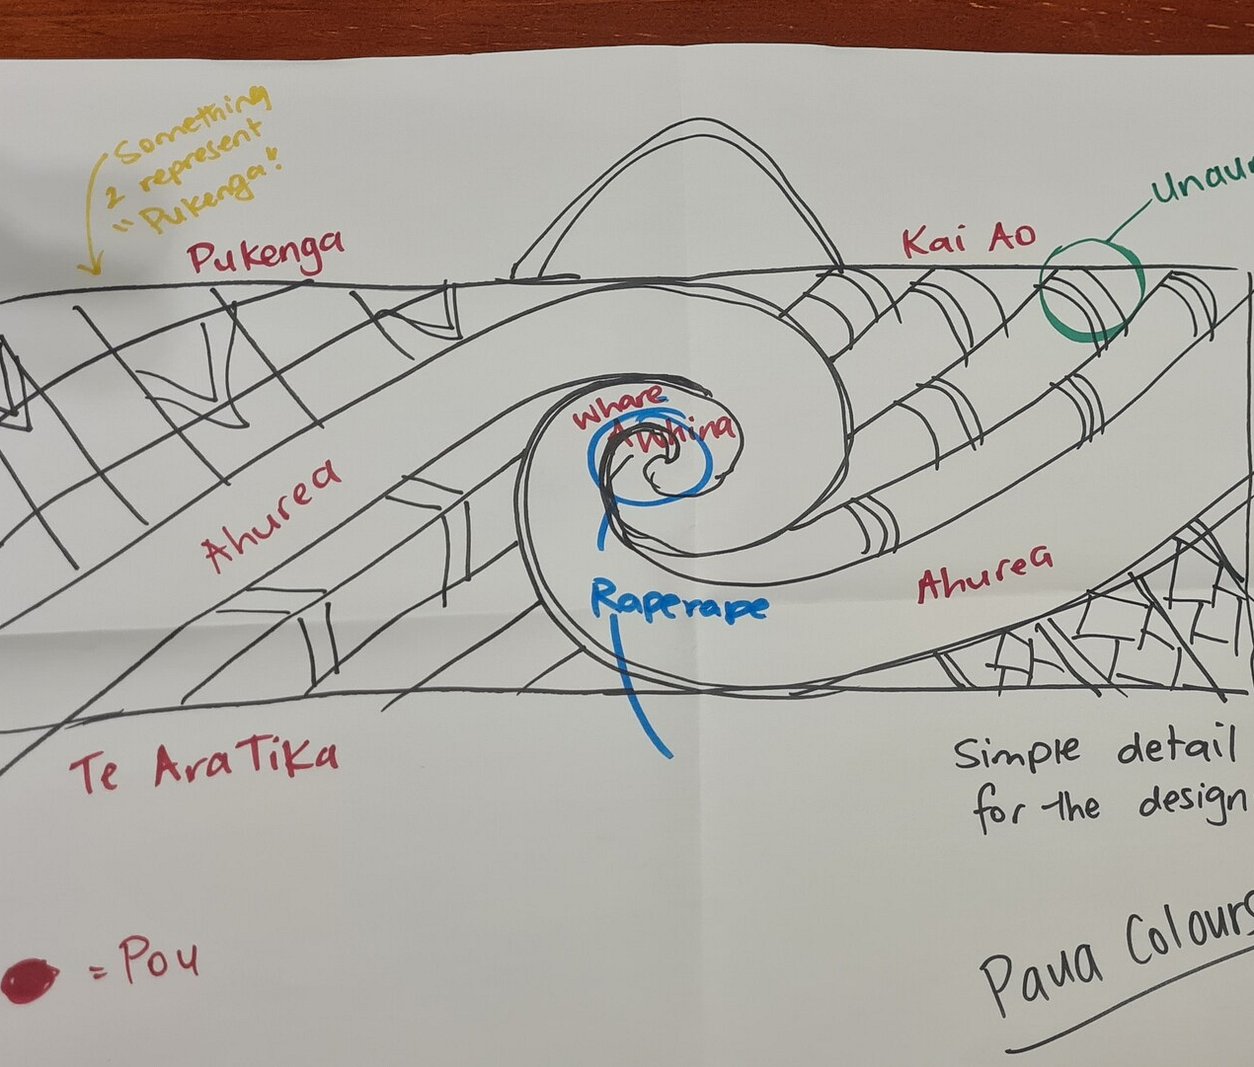 Something
2 represent
"Pukenga"!
Pukenga
Kai Ao
whare
Awhina
Ahurea
Raperape
Ahurea
Te Ara Tika
Simple detail
for the design
= Pou
Paua Colours